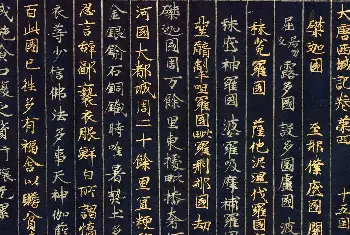 大唐西域記卷第四 十五國
磔迦國 至那僕底國 闍
屈露多國 設多圖盧國 波
秣兔羅國 薩他泥濕伐羅國
秣底補羅國 婆羅吸摩補羅國
堊醯掣呾羅國 毗羅刪那國 劫
磔迦國周万餘里東據毗播奢
河國大都城周二十餘里宜粳稻
金銀鍮石銅鐵時唯暑熱土多
急言辭鄙褻衣服鮮白所謂憍
衣等少信佛法多事天神伽藍
百此國已往多有福舍以贍貧